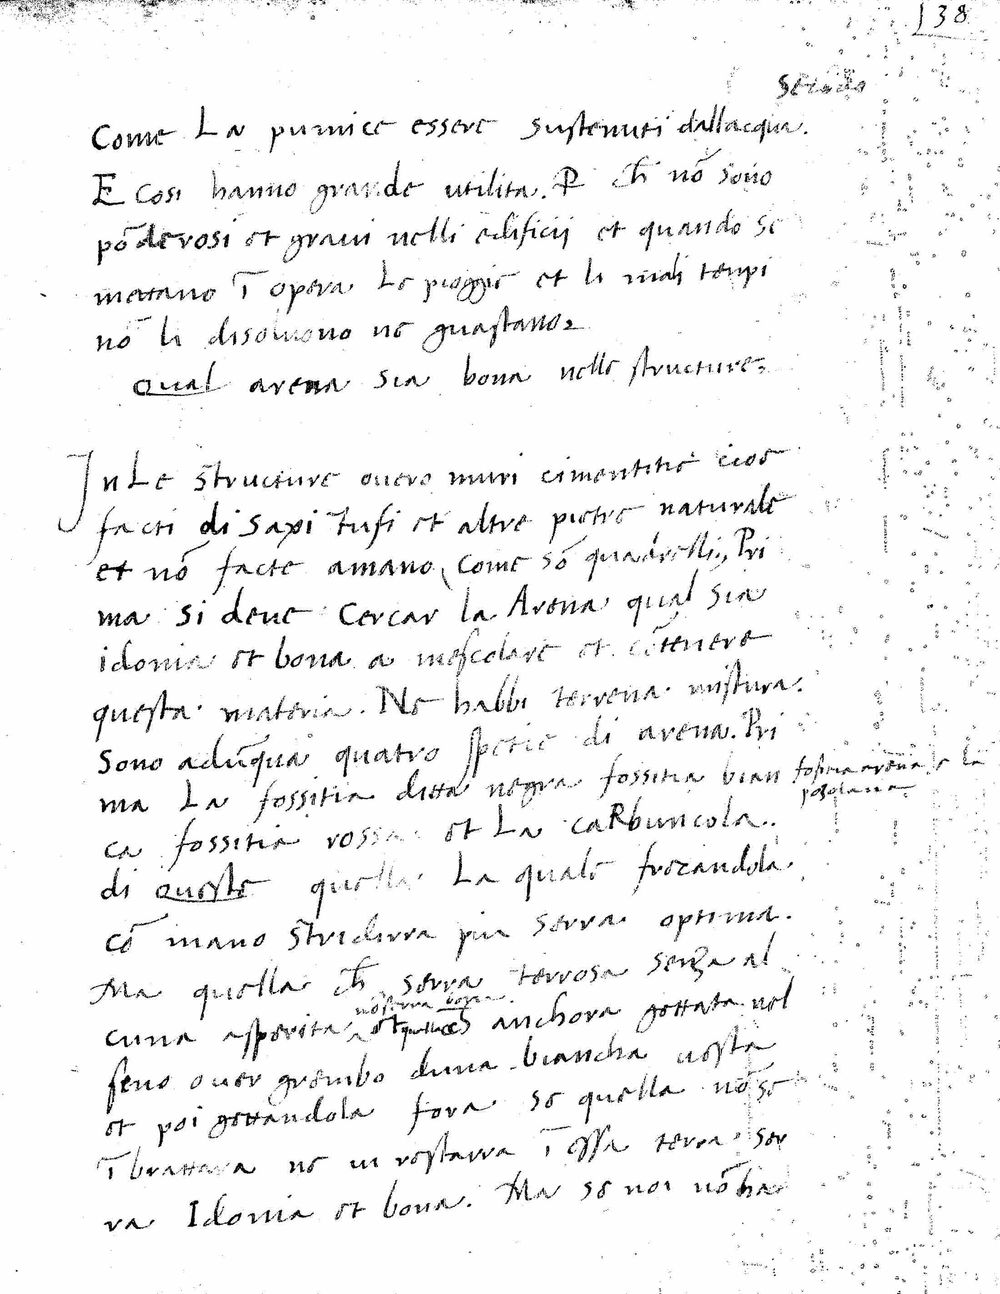 138
Secũdo
Come La pumice essere sustenuti dallacqua.
E Cosi hanno grande utilita. P ch̃ nõ sono
põderosi et gravi nelli edificij et quando se
mettano ĩ opera Le pioggie et li mali tempi
nõ li disoluono ne guastano
Qual arena sia bona nelle structure
In Le structure overo muri cimentitie cioe
facti di saxi Tufi et altre pietre naturale
et nõ facte amano, Come sõ quadrelli, Pri
ma si deve Cercar la Arena qual sia
idonia et bona a mescolare et cõtenere
questa materia. Ne habbi terrena mistura.
Sono adũqua quatro spetie di arena. Pri
ma La fossitia ditta negra fossitia bian
fossitia arena e la
pozolana
ca fossitia rossa et La caRbuncola.
di queste quella La quale frezandola
cõ mano Stridirra piu serra optima.
Ma quella ch̃ serra terrosa senza al
nõ serra bona
cuna asperita et quella anchora gettata nel
seno over grembo duna biancha vesta
et poi gettandola fora se quella nõ se
ĩbrattara ne vi restarra ĩ essa terra ser
ra Idonia et bona. Ma se noi nõ ha